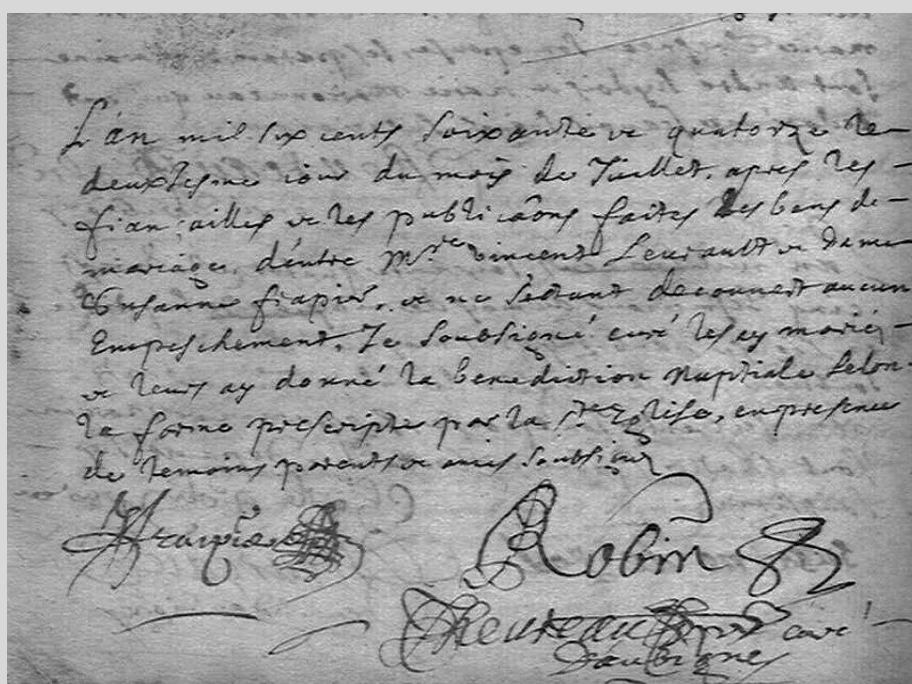 L'an mil six cents soixante & quatorze le
deuxiesme iour du mois de Juillet, apres les
fiançailles & les publicaõns faites des bans de
mariage, d'entre Mre Vincent Leurault & dame
Susanne frapier, & ne s'estant decouuert aucun
Empeschement, Je soubsigné curé les ay mariés
& leurs ay donné la benediction Nuptiale selon
la forme prescripte par la Ste Eglise, en presence
de temoins parents & amis soubsignés
Robin
curé
d'aubigné